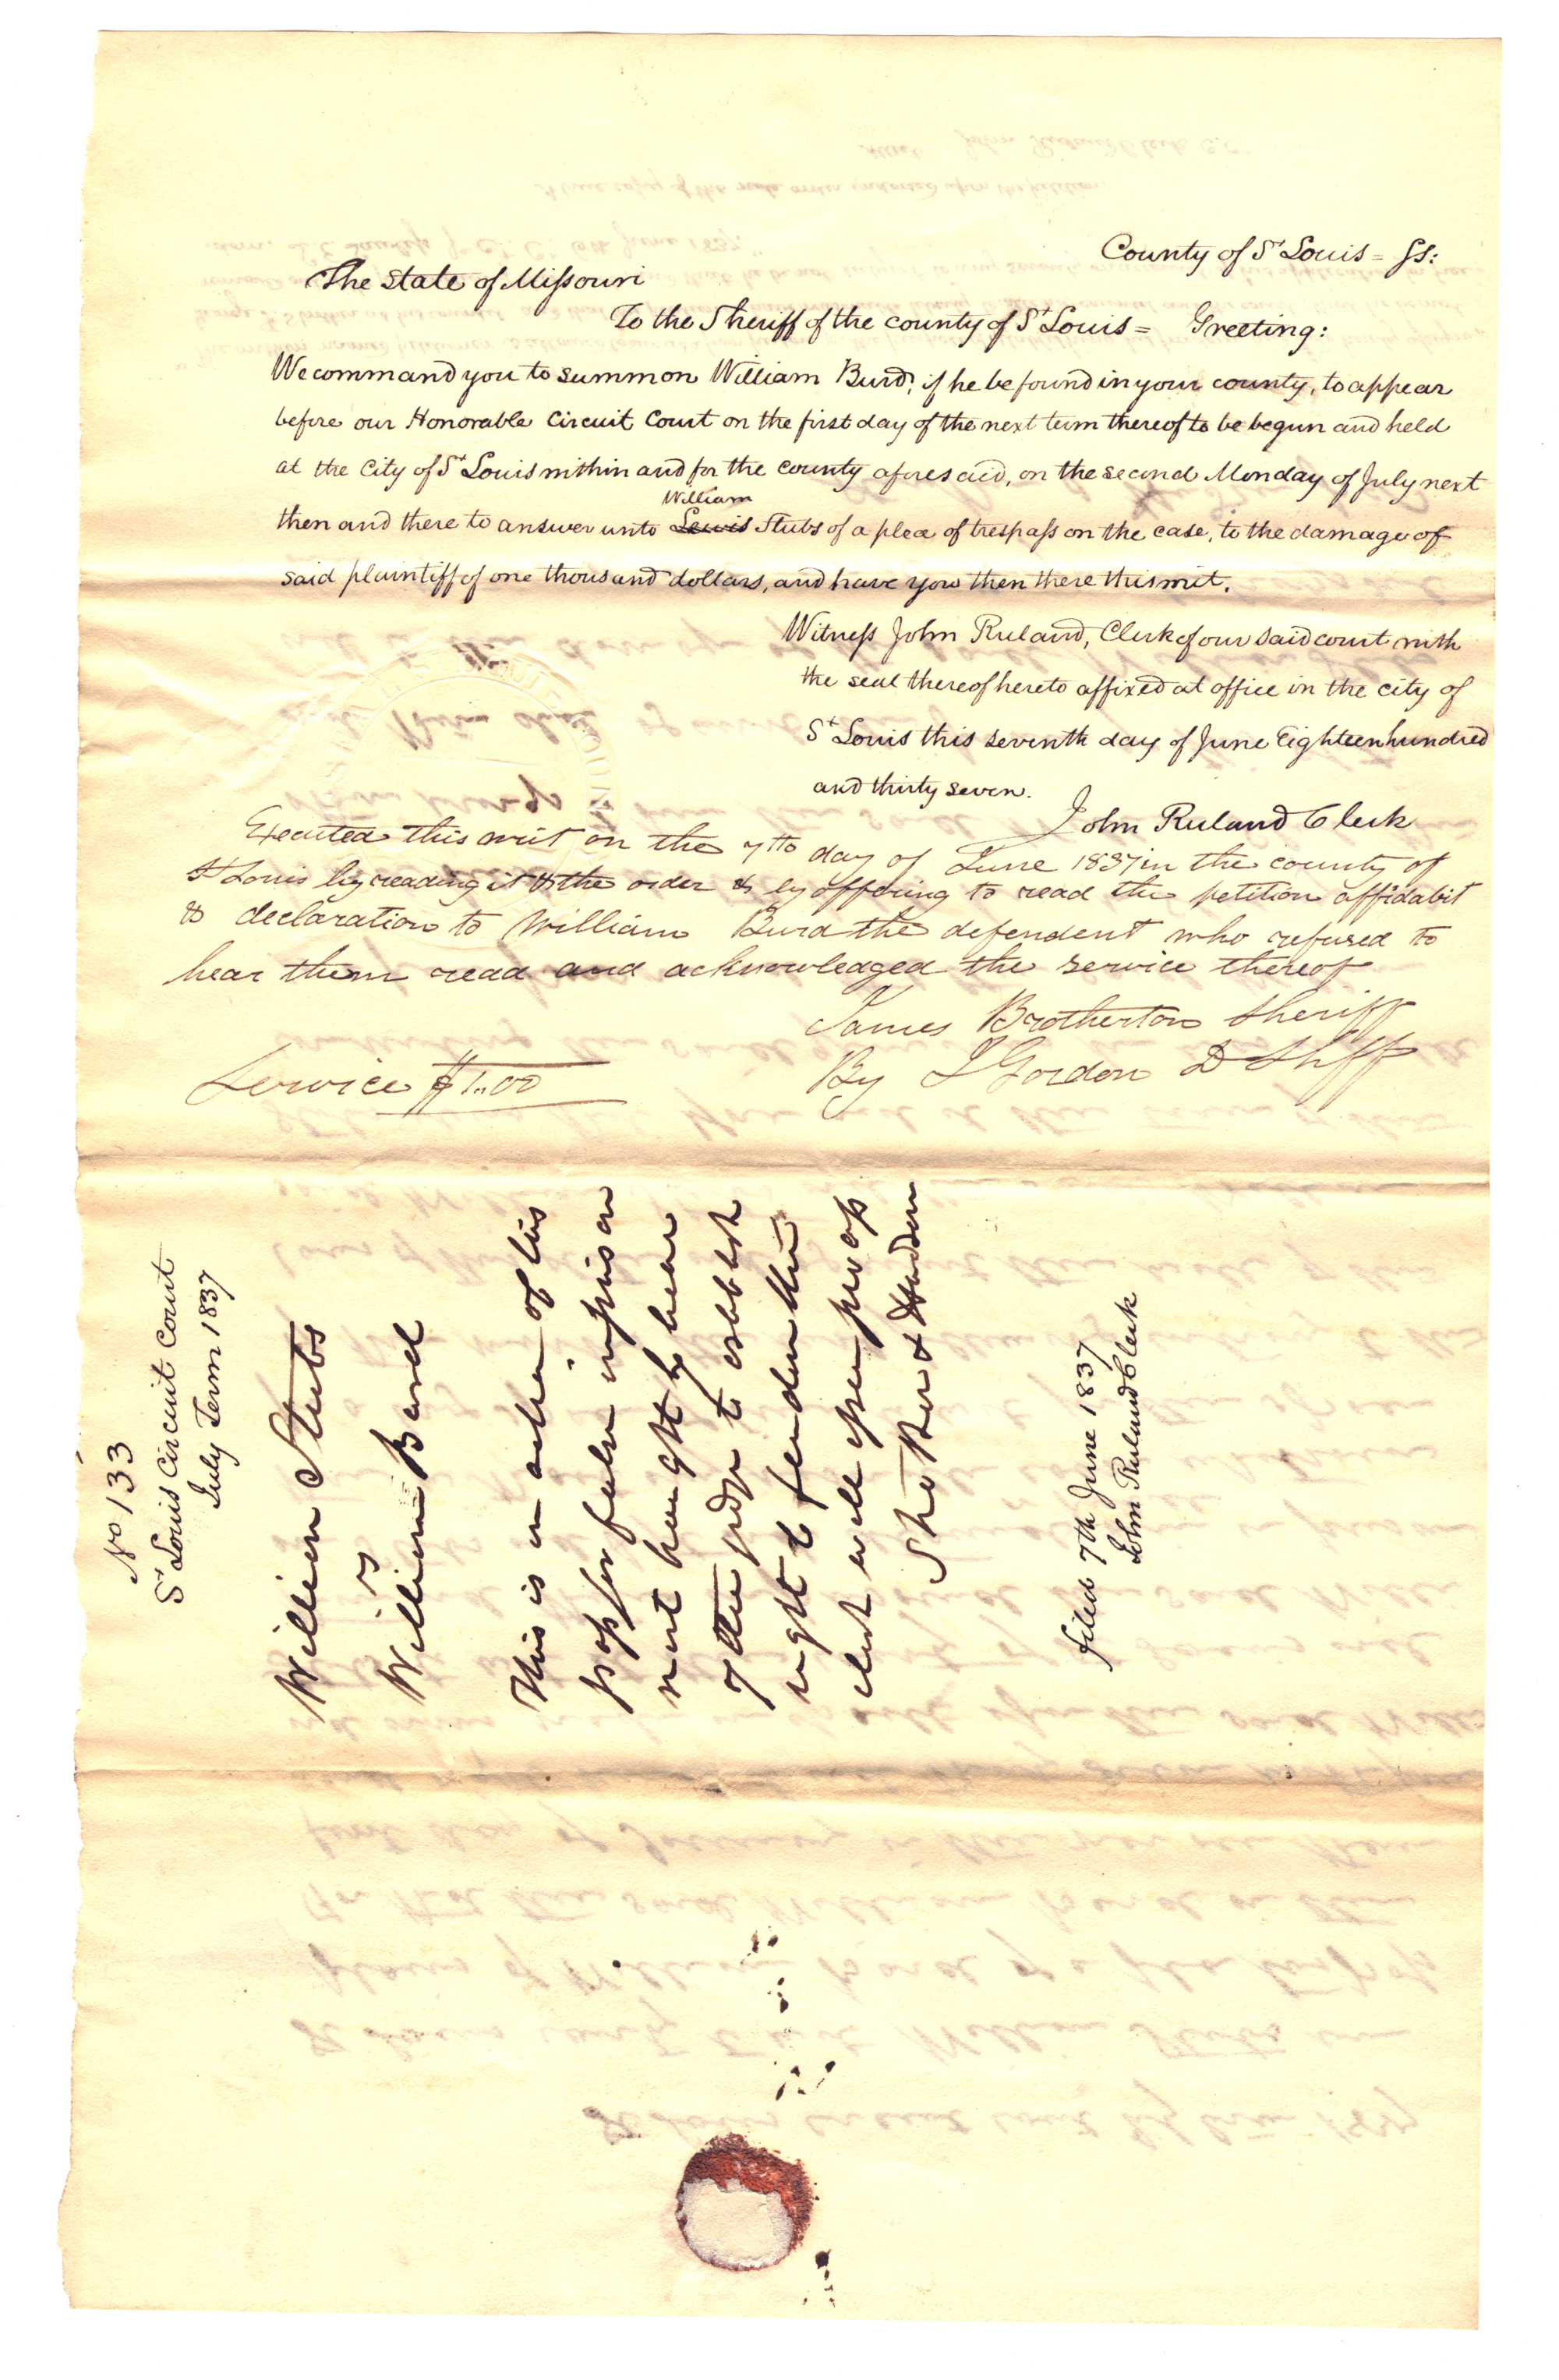 County of St Louis = SS:
The State of Missouri
To the Sheriff of the county of St Louis = Greeting:
We command you to summon William Burd, if he be found in your county, to appear
before our Honorable Circuit Court on the first day of the next term thereof to be begun and held
at the City of St Louis within and for the county aforesaid, on the second Monday of July next
William
then and there to answer unto Lewis Stubs of a plea of trespass on the case, to the damage of
said plaintiff of one thousand dollars, and have you then there this writ.
Witness John Ruland, Clerk of our said court with
the seal thereof hereto affixed at office in the city of
St Louis this seventh day of June Eighteen hundred
and thirty seven.
John Ruland Clerk
Executed this writ on the 7th day of June 1837 in the county of
St Louis by reading it & the order & by offering to read the petition affidabit
& declaration to William Burd the defendent who refused to
hear them read and acknowledged the service thereof
James Brotherton Sheriff
By J Gordon D Shff
Service $1.00
No 133
St Louis Circuit Court
July Term 1837
William Stubs
vs
William Burd
This is an action of tres
pass for false imprison
ment brought by leave
of the judge to establish
right to freedom the
clerk will issue process
Shotter & Hudson
filed 7th June 1837
John Ruland Clerk